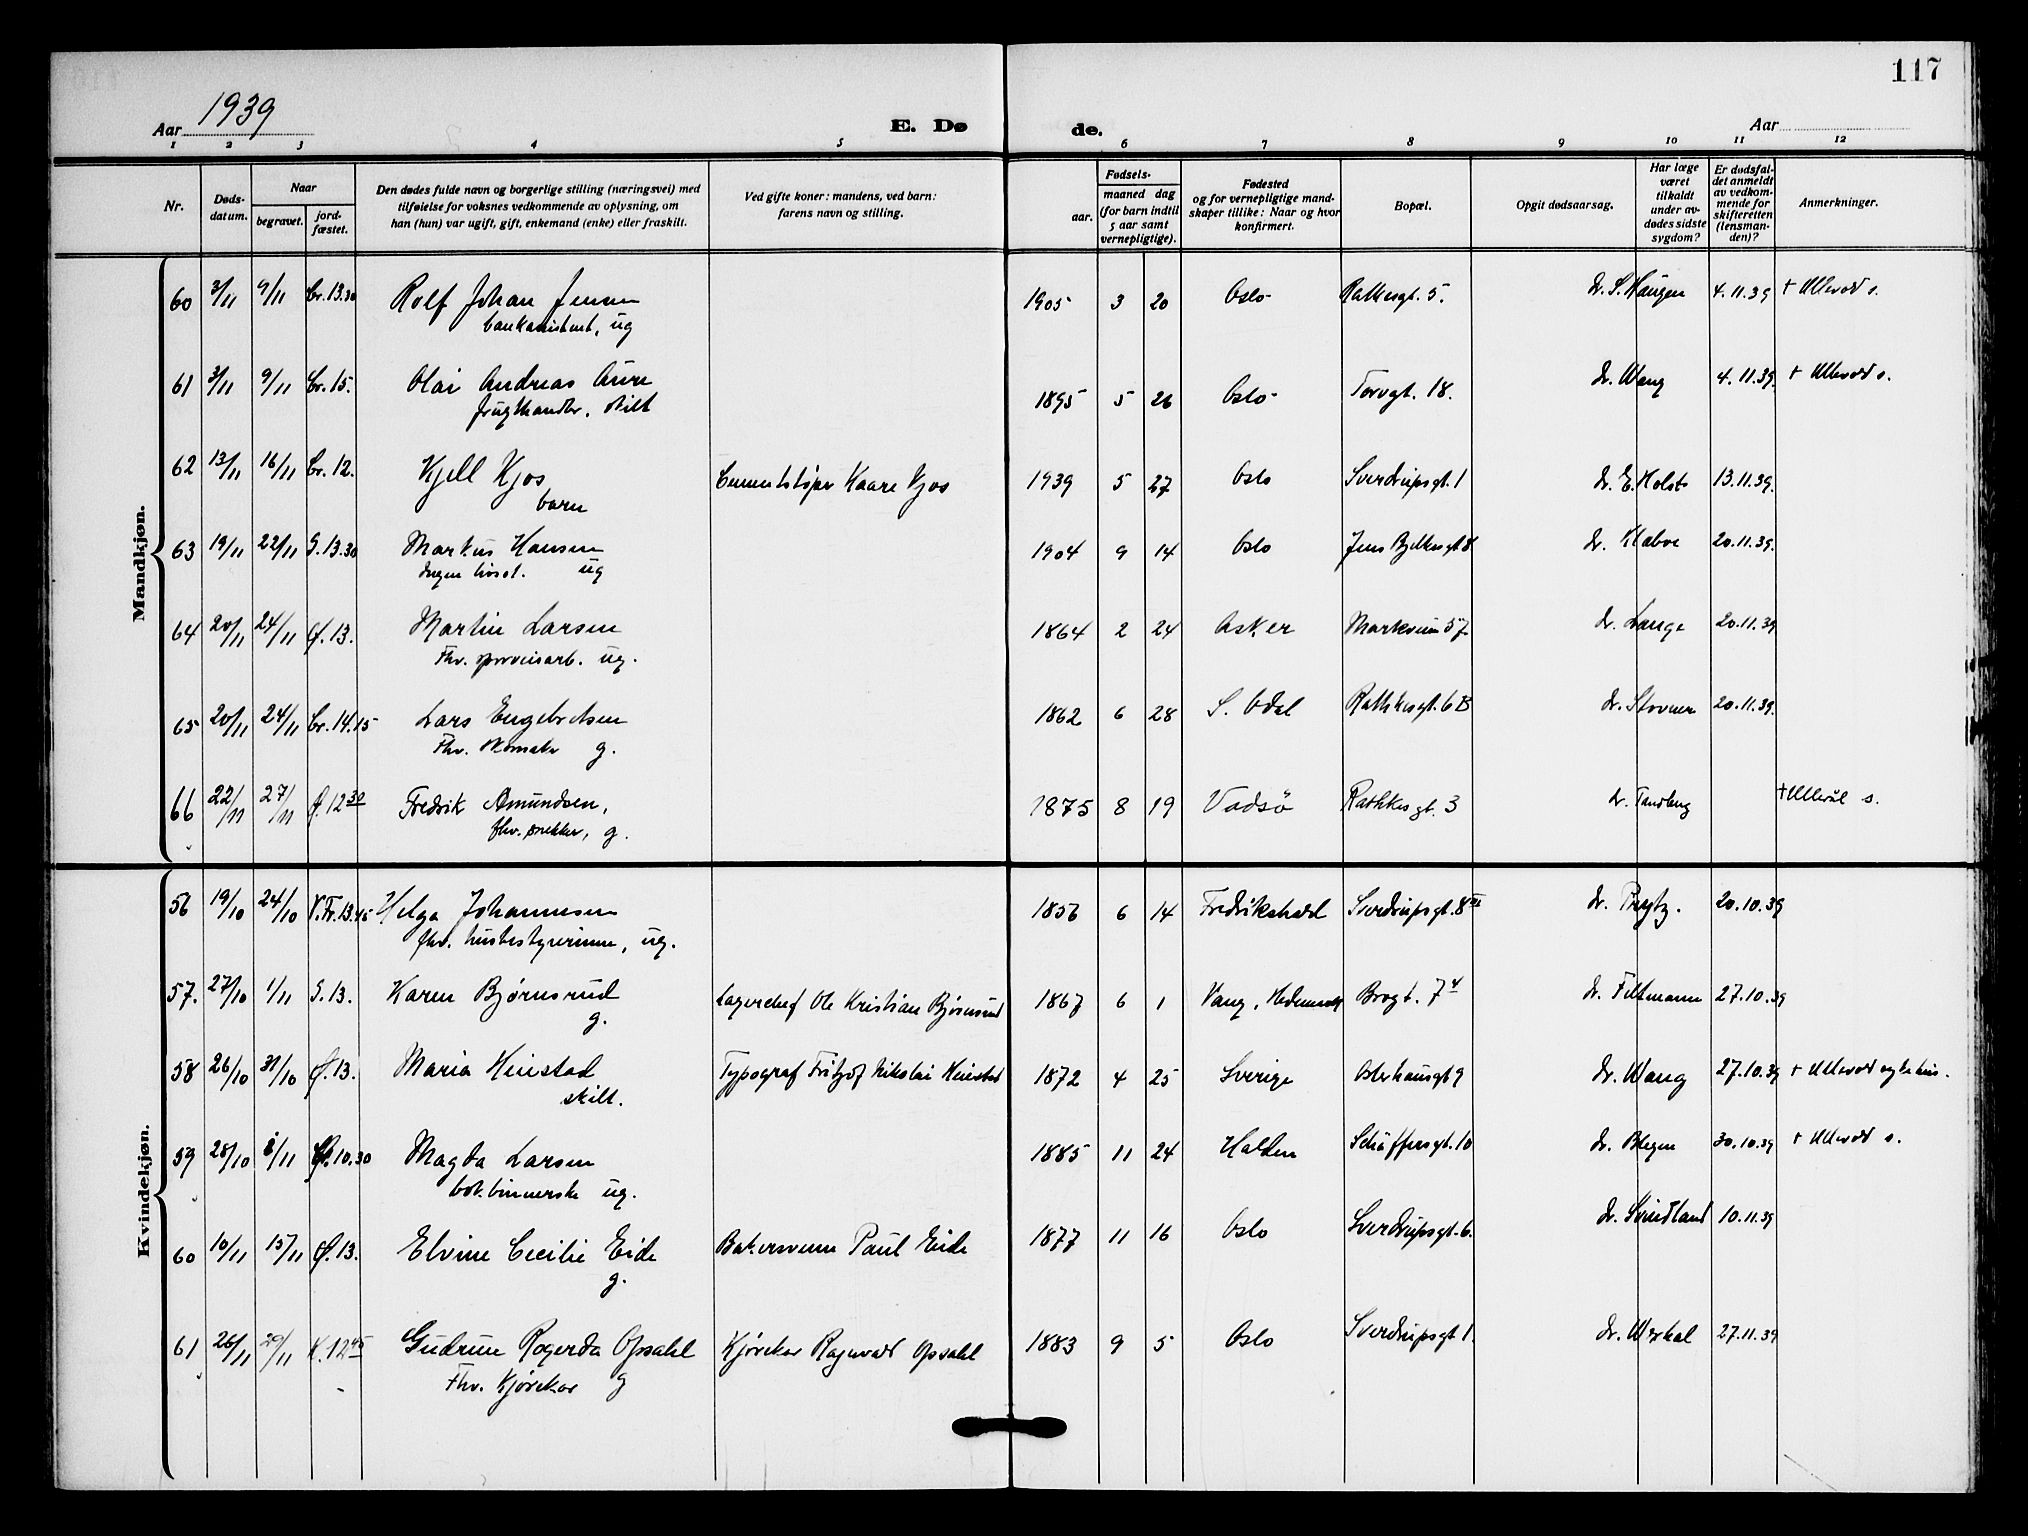 117
Aar 1939
E. Døde.
Aar
1 2 3 4 5 6 7 8 9 10 11 12
Nr.
Dødsdatum.
Naar
begravet.
jordfæstet.
Den dødes fulde navn og borgerlige stilling (næringsvei) med
tilføielse for voksnes vedkommende av oplysning, om
han (hun) var ugift, gift, enkemand (enke) eller fraskilt.
Ved gifte koner: mandens, ved barn:
farens navn og stilling.
Fødsels-
aar.
maaned dag
(for barn indtil
5 aar samt
vernepligtige).
Fødested
og for vernepligtige mand-
skaper tillike: Naar og hvor
konfirmert.
Bopæl.
Opgit dødsaarsag.
Har læge
været
tilkaldt
under av-
dødes sidste
sygdom?
Er dødsfal-
det anmeldt
av vedkom-
mende for
skifteretten
(lensman-
den)?
Anmerkninger.
Mandkjøn.
60 3/11 9/11 Cr. 13.30 Rolf Johan Jensen 1905 3 20 Oslo Rathkesgt. 5. Dr. S. Haugen 4.11.39 + Ullevål s.
bankassistent, ug
61 3/11 9/11 Cr. 15. Olai Andreas Aure 1895 5 26 Oslo Torvgt. 18. Dr. Wang 4.11.39. + Ullevål s.
frugthandler, skilt
62 13/11 16/11 Cr. 12. Kjell Kjos Cementstøper Kaare Kjos 1939 5 27 Oslo Sverdrupsgt. 1 Dr. E. Holst 13.11.39.
barn
63 19/11 22/11 G. 13.30 Markus Hansen 1904 9 14 Oslo Jens Bjelkesgt 8 Dr. Klabve 20.11.39.
Ingen livsst. ug
64 20/11 24/11 Ø. 13. Martin Larsen 1864 2 24 Asker Markveien 57 Dr. Lange 20.11.39
Fhv. sporveisarb. ug.
65 20/11 24/11 Cr. 14.15 Lars Engebretsen 1862 6 28 S. Odal Rathkesgt. 6 B Dr. Stovner 20.11.39.
Fhv. skomaker g.
66 22/11 27/11 Ø. 12 30 Fredrik Amundsen, 1875 8 19 Vadsø Rathkesgt. 3 Dr. Tandberg + Ullevål s.
fhv. snekker, g.
Kvindekjøn.
56 19/10 24/10 V.Fr. 13.45 Helga Johannesen 1856 6 14 Fredrikshald Sverdrupsgt. 8 III Dr. Prytz. 20.10.39
fhv. husbestyrerinne, ug.
57. 27/10 1/11 G. 13. Karen Bjørnsrud Lagerchef Ole Kristian Bjørnsrud 1867 6 1 Vang, Hedmark Brogt. 7 4 Dr. Feltmann 27.10.39
g.
58 26/10 31/10 Ø. 13. Maria Heiestad Typograf Fritjof Nikolai Heiestad 1872 4 25 Sverige Osterhausgt 9 Dr. Wang 27.10.39 + Ullevål sykehus.
skilt.
59 28/10 /11 10.30 Magda Larsen 1885 11 24 Halden Schäffersgt. 10 Dr. Blegen 30.10.39 + Ullevål s.
bokbinnerske ug.
60 10/11 15/11 Ø. 13. Elvine Cecilie Eide Bakersvenn Paul Eide 1877 11 16 Oslo Sverdrupsgt. 6. Dr. Svindland 10.11.39
g.
61 26/11 29/11 K. 12 45 Gudrun Ragerda Opsahl Kjørekar Ragnvald Opsahl 1883 9 5 Oslo Sverdrupsgt 1. Dr. 27.11.39
Fhv. Kjørekar g